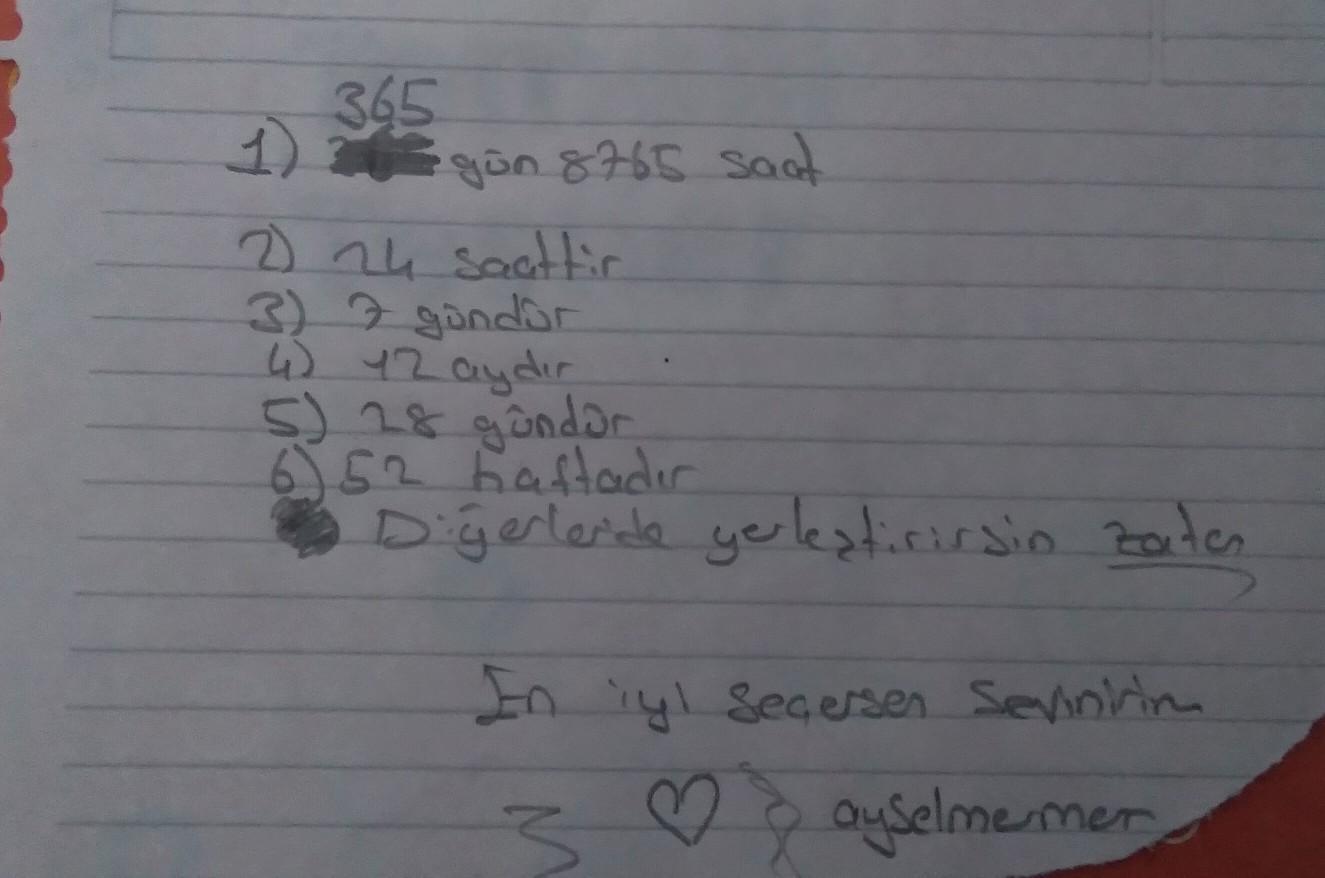 365
1) gün 8765 saat
2) 24 saattir
3) 7 gündür
4) 12 aydır
5) 28 gündür
6) 52 haftadır
Diğerleride yerleştirirsin zaten
En iyi seçersen sevinirim
ayselmermer